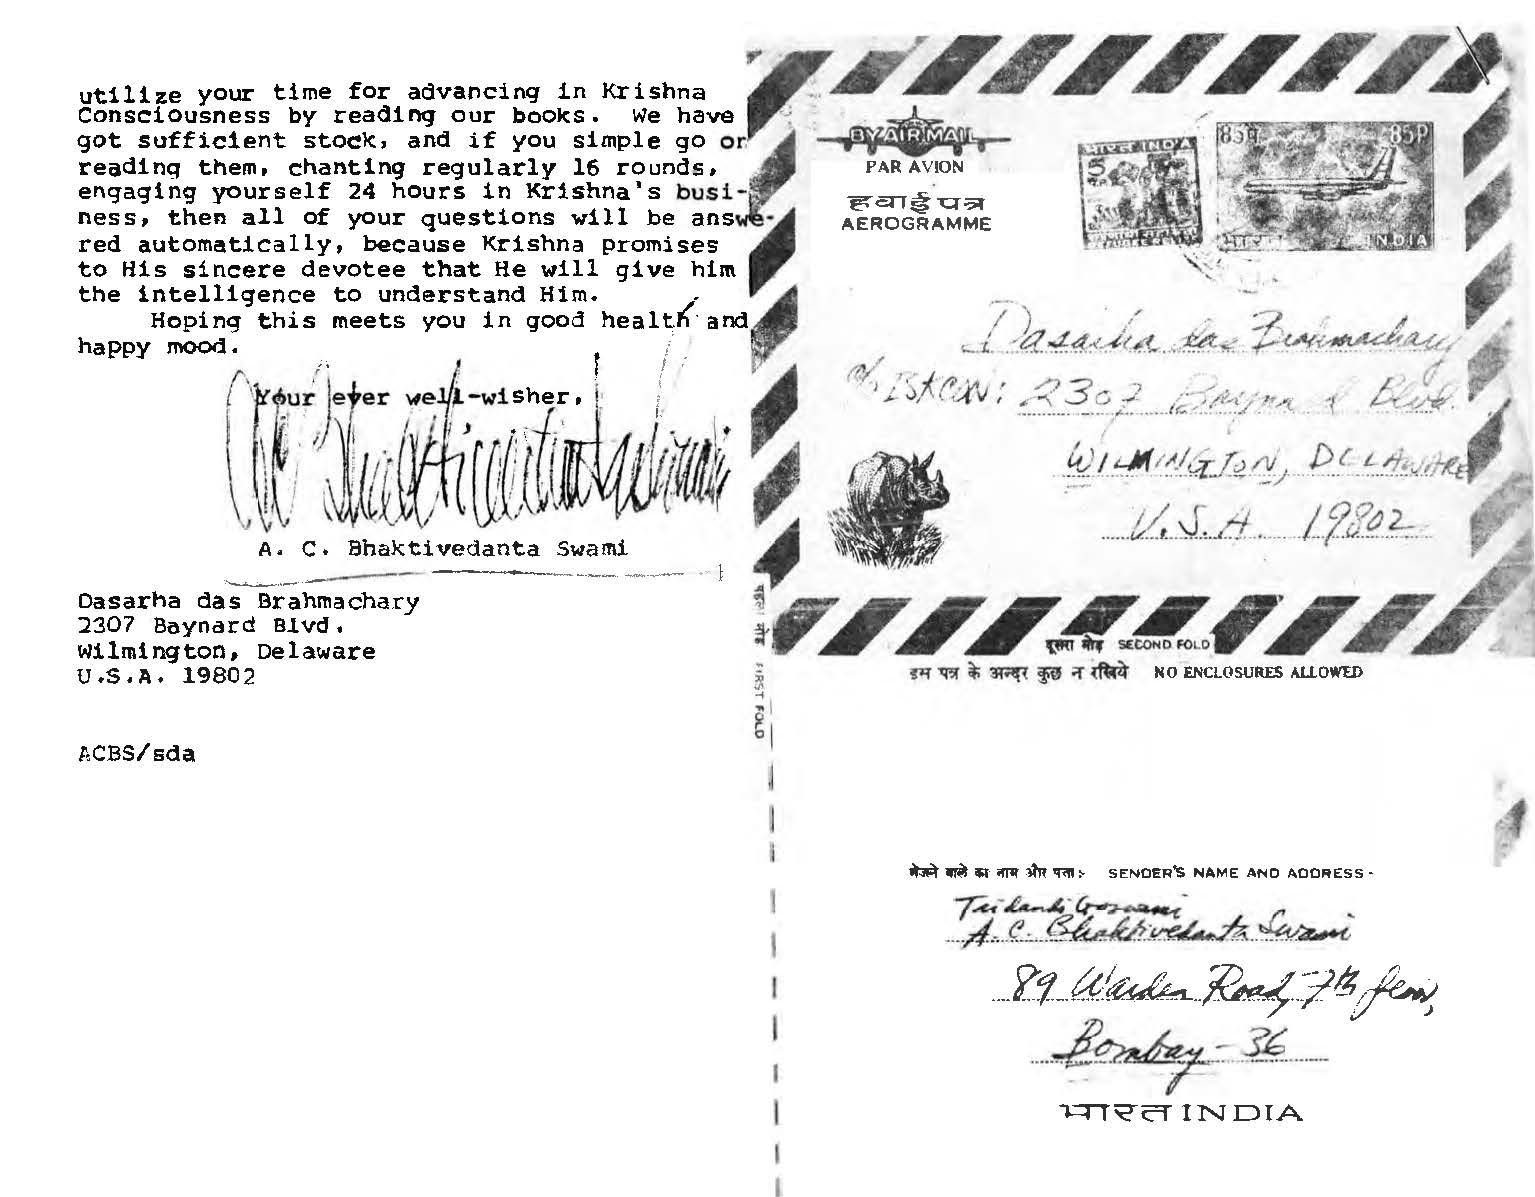 utilize your time for advancing in Krishna
Consciousness by reading our books. We have
got sufficient stock, and if you simple go on
reading them, chanting regularly 16 rounds,
engaging yourself 24 hours in Krishna's busi-
ness, then all of your questions will be answe-
red automatically, because Krishna promises
to His sincere devotee that He will give him
the intelligence to understand Him.
Hoping this meets you in good health and
happy mood.
Your ever well-wisher,
A C Bhaktivedanta Swami
A. C. Bhaktivedanta Swami
Dasarha das Brahmachary
2307 Baynard Blvd.
Wilmington, Delaware
U.S.A. 19802
ACBS/sda
BY AIR MAIL
PAR AVION
हवाई पत्र
AEROGRAMME
भारत INDIA
5
85P 85P
भारत INDIA
Dasarha das Brahmachary
c/o ISKCON: 2307 Baynard Blvd.
WILMINGTON, DELAWARE
U.S.A. 19802
पहला मोड़ FIRST FOLD
दूसरा मोड़ SECOND FOLD
इस पत्र के अन्दर कुछ न रखिये NO ENCLOSURES ALLOWED
भेजने वाले का नाम और पता :- SENDER'S NAME AND ADDRESS -
Tridandi Goswami
A. C. Bhaktivedanta Swami
89 Warden Road, 7th floor,
Bombay - 36
भारत INDIA